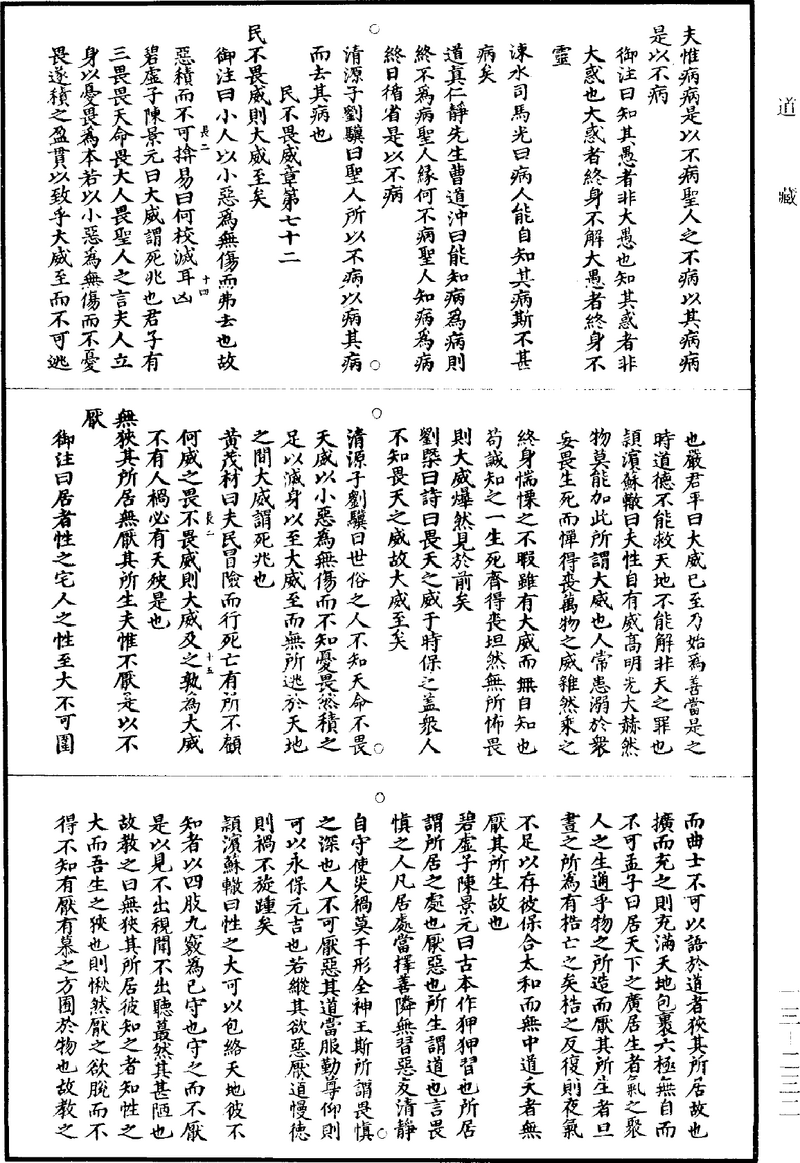 道藏
夫惟病病是以不病聖人之不病以其病病
是以不病
御注曰知其愚者非大愚也知其惑者非
大惑也大惑者終身不解大愚者終身不
靈
涑水司馬光曰病人能自知其病斯不甚
病矣
道真仁靜先生曹道沖曰能知病為病則
終不為病聖人緣何不病聖人知病為病
終日循省是以不病
清源子劉驥曰聖人所以不病以病其病
而去其病也
民不畏威章第七十二
民不畏威則大威至矣
御注曰小人以小惡為無傷而弗去也故
長二
十四
惡積而不可揜易曰何校滅耳凶
碧虛子陳景元曰大威謂死兆也君子有
三畏畏天命畏大人畏聖人之言夫人立
身以憂畏為本若以小惡為無傷而不憂
畏遂積之盈貫以致乎大威至而不可逃
也嚴君平曰大威已至乃始為善當是之
時道德不能救天地不能解非天之罪也
頴濱蘇轍曰夫性自有威高明光大赫然
物莫能加此所謂大威也人常患溺於衆
妄畏生死而憚得喪萬物之威雜然乘之
終身惴慄之不暇雖有大威而無自知也
苟誠知之一生死齊得喪坦然無所怖畏
則大威爗然見於前矣
劉槩曰詩曰畏天之威于時保之蓋衆人
不知畏天之威故大威至矣
清源子劉驥曰世俗之人不知天命不畏
天威以小惡為無傷而不知憂畏然積之
足以滅身以至大威至而無所逃於天地
之間大威謂死兆也
黃茂材曰夫民冒險而行死亡有所不顧
長二
十五
何威之畏不畏威則大威及之孰為大威
不有人禍必有天殃是也
無狹其所居無厭其所生夫惟不厭是以不
厭
御注曰居者性之宅人之性至大不可圍
而曲士不可以語於道者狹其所居故也
擴而充之則充滿天地包裹六極無自而
不可孟子曰居天下之廣居生者氣之聚
人之生適乎物之所造而厭其所生者旦
晝之所為有梏亡之矣梏之反復則夜氣
不足以存彼保合太和而無中道夭者無
厭其所生故也
碧虛子陳景元曰古本作狎狎習也所居
謂所居之處也厭惡也所生謂道也言畏
慎之人凡居處當擇善隣無習惡友清靜
自守使災禍莫干形全神王斯所謂畏慎
之深也人不可厭惡其道當服勤尊仰則
可以永保元吉也若縱其欲惡厭道慢德
則禍不旋踵矣
頴濱蘇轍曰性之大可以包絡天地彼不
知者以四肢九竅為已守也守之而不厭
是以見不出視聞不出聽蕞然其甚陋也
故教之曰無狹其所居彼知之者知性之
大而吾生之狹也則愀然厭之欲脫而不
得不知有厭有慕之方囿於物也故教之
一三—一二三二